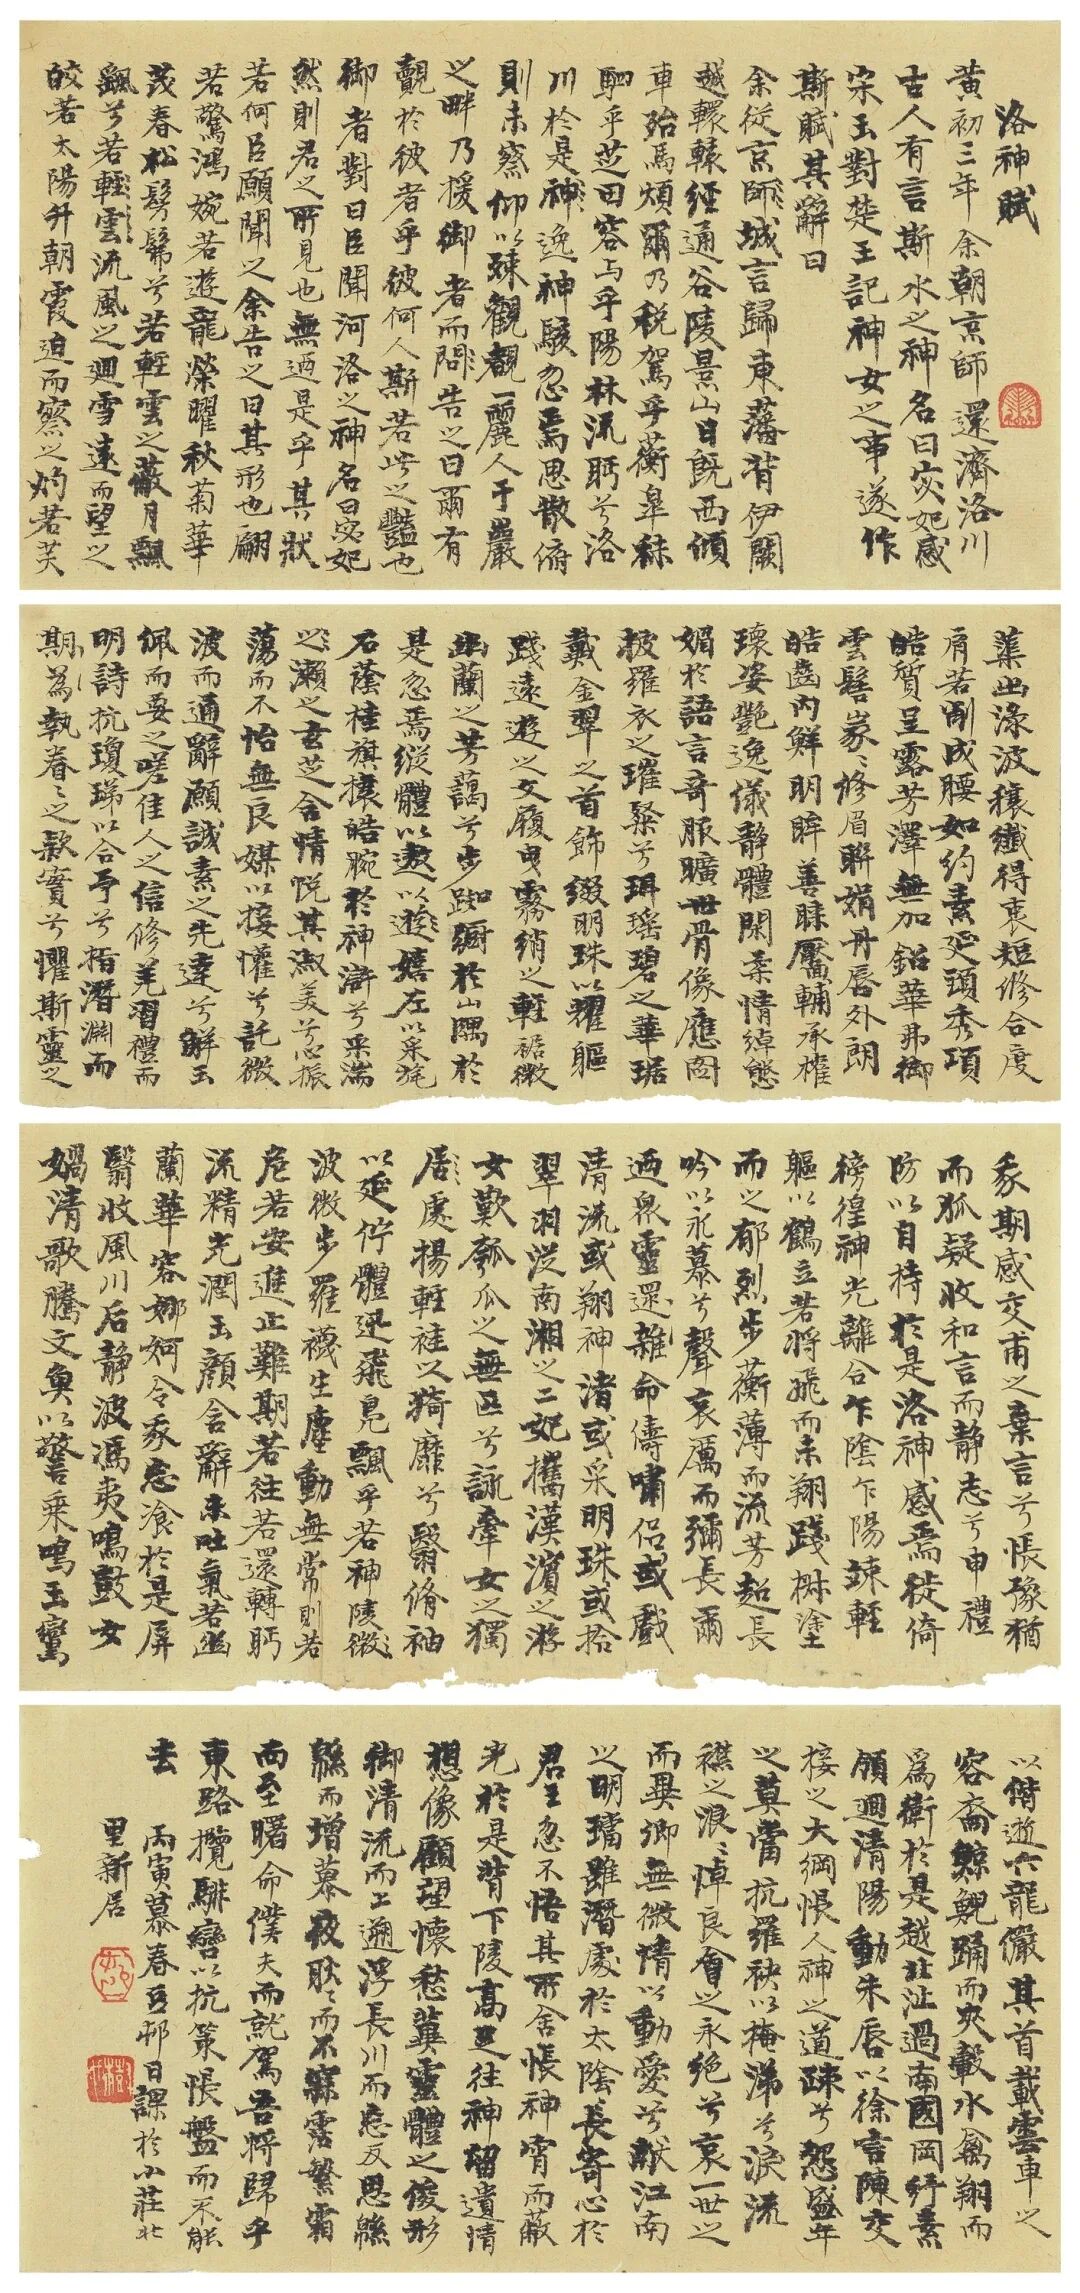 洛神賦
黃初三年余朝京師還濟洛川
古人有言斯水之神名曰宓妃感
宋玉對楚王記神女之事遂作
斯賦其辭曰
余從京師城言歸東藩背伊闕
越轘轅經通谷陵景山日既西傾
車殆馬煩爾乃稅駕乎蘅皋秣
駟乎芝田容與乎陽林流眄兮洛
川於是神逸神駭忽焉思散俯
則未察仰以殊觀覩一麗人于巖
之畔乃援御者而問告之曰爾有
覿於彼者乎彼何人斯若此之豔也
御者對曰臣聞河洛之神名曰宓妃
然則君之所見也無迺是乎其狀
若何臣願聞之余告之曰其形也翩
若驚鴻婉若遊龍榮曜秋菊華
茂春松髣髴兮若輕雲之蔽月飄
飄兮若輕雲流風之迴雪遠而望之
皎若太陽升朝霞迫而察之灼若芙
蕖出淥波穠纖得衷短修合度
肩若削成腰如約素延頸秀項
皓質呈露芳澤無加鉛華弗御
雲髻峩〻修眉聯娟丹唇外朗
皓齒內鮮明眸善睞靨輔承權
瓌姿艷逸儀靜體閑柔情綽態
媚於語言奇服曠世骨像應圖
披羅衣之璀粲兮珥瑤碧之華琚
戴金翠之首飾綴明珠以耀軀
踐遠遊之文履曳霧綃之輕裾微
幽蘭之芳藹兮步踟躕於山隅於
是忽焉縱體以遨以遊嬉左以采旄
右蔭桂旗攘皓腕於神滸兮采湍
之瀨之玄芝余情悅其淑美兮心振
蕩而不怡無良媒以接懽兮託微
波而通辭願誠素之先達兮解玉
佩而要之嗟佳人之信修羌習禮而
明詩抗瓊珶以合予兮指潛淵而
期為執眷〻之款實兮懼斯靈之
我期感交甫之棄言兮悵豫猶
而狐疑收和言而靜志兮申禮
防以自持於是洛神感焉徙倚
徬徨神光離合乍陰乍陽竦輕
軀以鶴立若將飛而未翔踐椒塗
而之郁烈步蘅薄而流芳超長
吟以永慕兮聲哀厲而彌長爾
迺眾靈還雜命儔嘯侶或戲
清流或翔神渚或采明珠或拾
翠羽從南湘之二妃攜漢濱之游
女歎匏瓜之無匹兮詠牽女之獨
居處揚輕袿以猗靡兮翳脩袖
以延佇體迅飛鳧飄乎若神陵微
波微步羅襪生塵動無常則若
危若安進止難期若往若還轉眄
流精光潤玉顏含辭未吐氣若幽
蘭華容婀娜令我忘飡於是屏
翳收風川后靜波馮夷鳴鼓女
媧清歌騰文魚以警乘鳴玉鸞
以偕逝六龍儼其首載雲車之
容裔鯨鯢踊而夾轂水禽翔而
為衛於是越北沚過南國岡紆素
領迴清陽動朱唇以徐言陳交
接之大綱悵人神之道殊兮怨盛年
之莫當抗羅袂以掩涕兮淚流
襟之浪〻悼良會之永絕兮哀一世之
而異鄉無微情以動愛兮獻江南
之明璫雖潛處於太陰長寄心於
君王忽不悟其所舍悵神宵而蔽
光於是背下陵高足往神留遺情
想像顧望懷愁冀靈體之復形
御清流而上遡浮長川而忘反思緜
緜而增慕夜耿〻而不寐霑繁霜
而至曙命僕夫而就駕吾將歸乎
東路攬騑轡以抗策悵盤而不能
去
丙寅暮春日課於小莊北
里新居